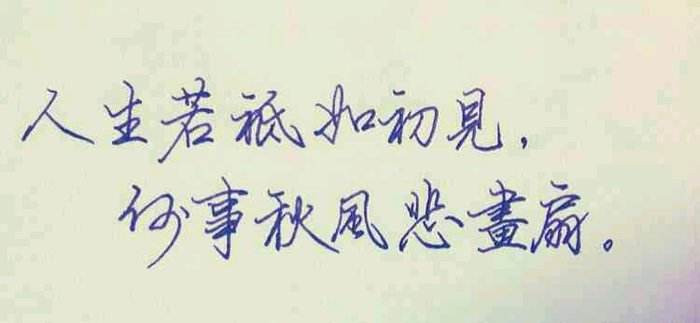 人生若祗如初見，
何事秋風悲畫扇。